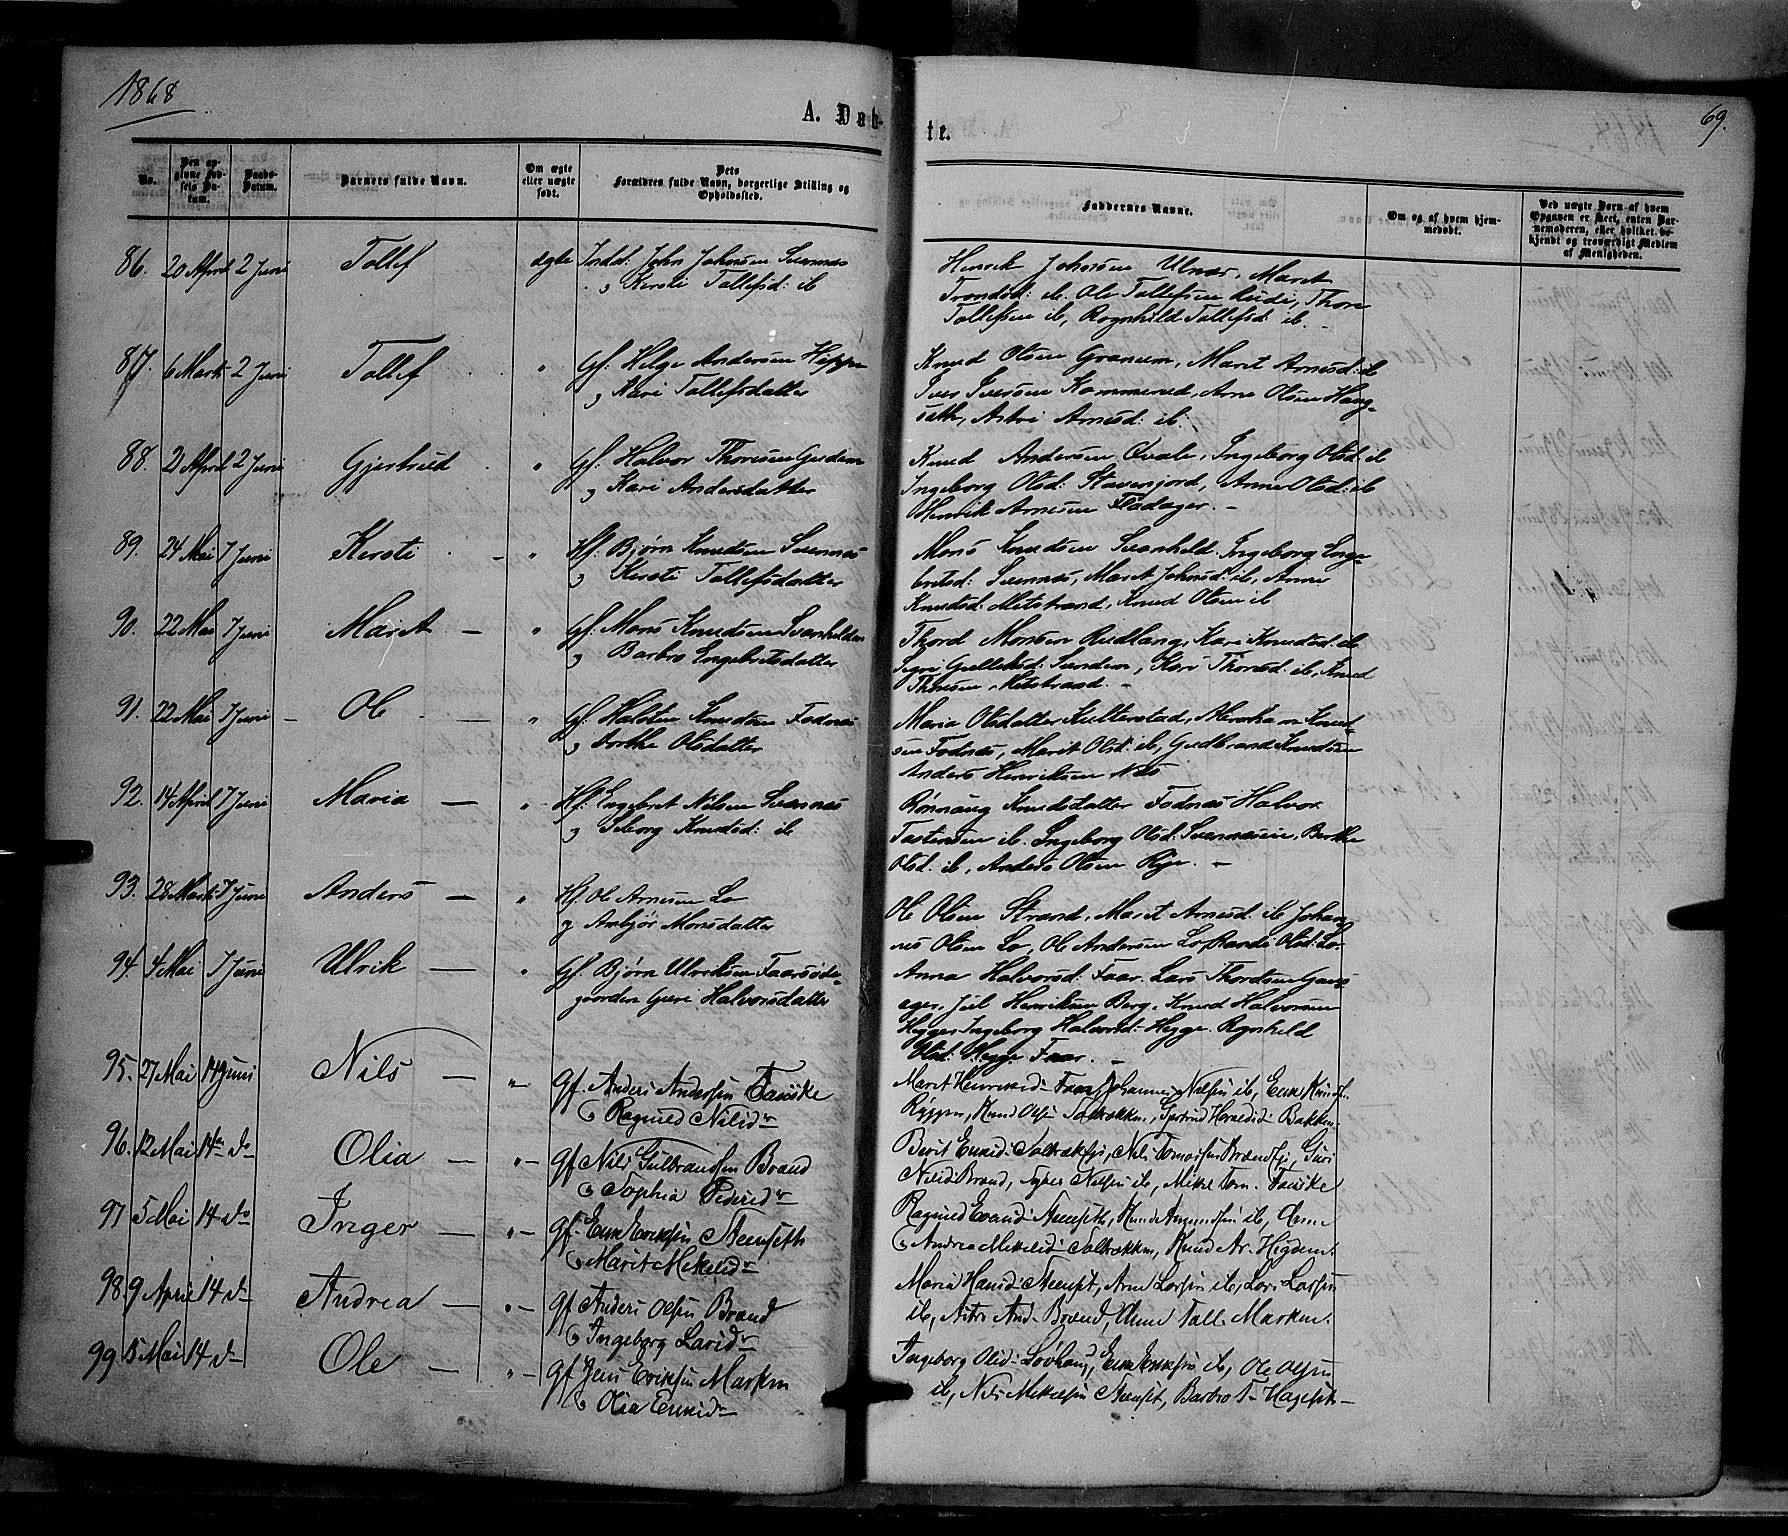 1868
A. Døb-
te.
69.
No.
Den opgivne Fødsels Datum.
Daabs-Datum.
Barnets fulde Navn.
Om ægte eller uægte født.
Dets Forældres fulde Navn, borgerlige Stilling og Opholdssted.
Faddernes Navne.
Om og af hvem hjemmedøbt.
Ved uægte Børn af hvem Opgaven er skeet, enten Barnemoderen, eller hvilket bekjendt og troværdigt Medlem af Menigheden.
86. 20 April 2 Juni Tollef ægte Indst. John Johnsen Svennæs
Kersti Tollefsd: ib
Henrik Johnsen Ulnæs, Marit
Trondsd: ib. Ole Tollefsen Rudi, Thore
Tollefsen ib, Rognhild Tollefsd. ib.
87. 6 Marts 2 Juni Tollef " Gf: Helge Andersen
Kari Tollefsdatter
Knud Olsen Granum, Marit Arnesd: ib
Iver Iversen Kammerud, Arne Olsen Haug-
seth, Astri Arnesd: ib.
88. 21 April 2 Juni Gjertrud " Gf: Halvor Thoresen
Kari Andersdatter
Knud Andersen Qvale, Ingeborg Olsd: ib
Ingeborg Olsd: Stavenjord, Anne Olsd: ib
Henrik Arnesen Fladager. –
89. 24 Mai 7 Juni Kersti – " Hf: Bjørn Knudsen Svennæs
Kersti Tollefsdatter
Mons Knudsen Svanhild. Ingeborg Enge-
bretsd: Svennæs, Marit Johnsd: ib, Anne
Knudsd: Mitstrand, Knud Olsen ib
90. 22 Mai 7 Juni Marit – " Gf: Mons Knudsen Svanhilden
Barbro Engebretsdatter
Thord Monsen Rudlang, Kari Knudsd: ib
Sigri Gulleksd: Sundem, Kari Thorsd: ib, Knud
Thoresen Mitstrand. –
91. 22 Mai 7 Juni – Ole – " Gf: Halsten Knudsen Fodnæs
Dorthe Olsdatter
Maria Olsdatter Kulterstad, Abraham Knud-
sen Fodnæs, Marit Olsd: ib, Gudbrand Knudsen
Anders Henriksen Næs
92. 14 April 7 Juni Maria – " Hf: Engebret Nilsen Svennæs
Knudsd: ib
Rønnaug Knudsdatter Fodnæs Halvor
Tostensen ib. Ingeborg Olsd: Svennæseie, Berthe
Olsd. ib, Anders Olsen Rye. –
93. 28 Marts 7 Juni Anders – " Hf. Ole Arnesen Lo
Ambjør Monsdatter
Ole Olsen Strand, Marit Arnesd. ib Johan-
nes Olsen Lo, Ole Andersen Lo, Randi Olsd: Lo
94. 4 Mai 7 Juni Ulrik – " Gf: Bjørn Ulriksen Faarsøde-
gaarden Guri Halvorsdatter
Anna Halvorsd: Faar. Lars Thordsen
ager, Juel Henriksen Berg, Knud Halvorsen
Hegge, Ingeborg Halvorsd: Hegge. Rgnhild
Olsd: Hegge Faar. –
95. 27 Mai 14 Juni Nils – " Gf. Anders Andersen Fauske
Ragnild Nilsdr
Marit Henriksd: Faar, Johannes Nilsen ib, Erik Knudsn
Ryggen, Knud Olsen Solbrækken, Bakken
96. 12 Mai 14 do Olia – " Gf Nils Gulbrandsen Brænd
Sophia Pedersdr
Berit Eriksd: Nils Brænd, Guri
Nilsd: Brænd, Nilsen ib, Fauske
97 5 Mai 14 do Inger – " Gf. Erik Eriksen Steenseth
Marit Mikkelsdr
Ragnild Evensd: Steenseth, Knud Amundsen ib, Arne
Andrea Mikkelsd: Solbrækken, Knud Ar. Høgden.
98. 9 April 14 do Andrea – " Gf Anders Olsen Brænd
Ingeborg Larsdr
Maria Hansd: Steenset, Arne Larsen ib, Lars Larsen
ib, Astri And. Brænd, Marken.
99 15 Mai 14 do Ole – " Gf Jens Eriksen Marken
Olia Eriksdr
Ingeborg Olsd: Løvhaug, Erik Eriksen ib, Ole Olsen
ib, Nils Mikkelsen Steenset, Barbro